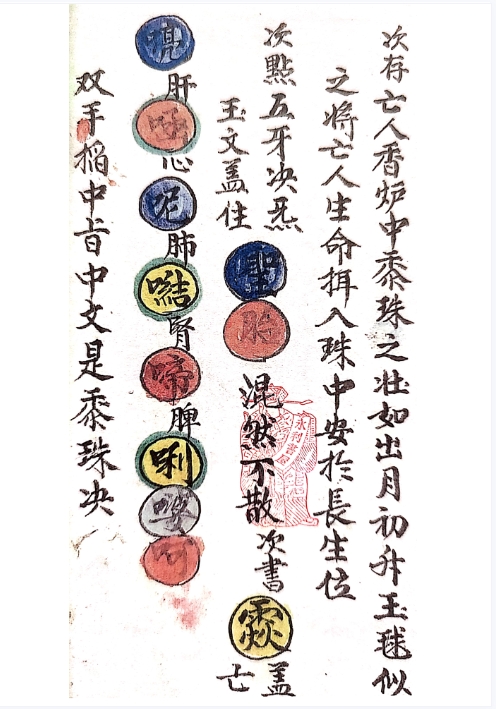 次存亡人香炉中黍珠之壮如出月初升玉毬似
之将亡人生命入珠中安於長生位
次點五牙决炁
玉文盖住
聖混然不散次書盖
亡
肝心肺㗌腎啼脾唎
双手搯中旨中文是黍珠决